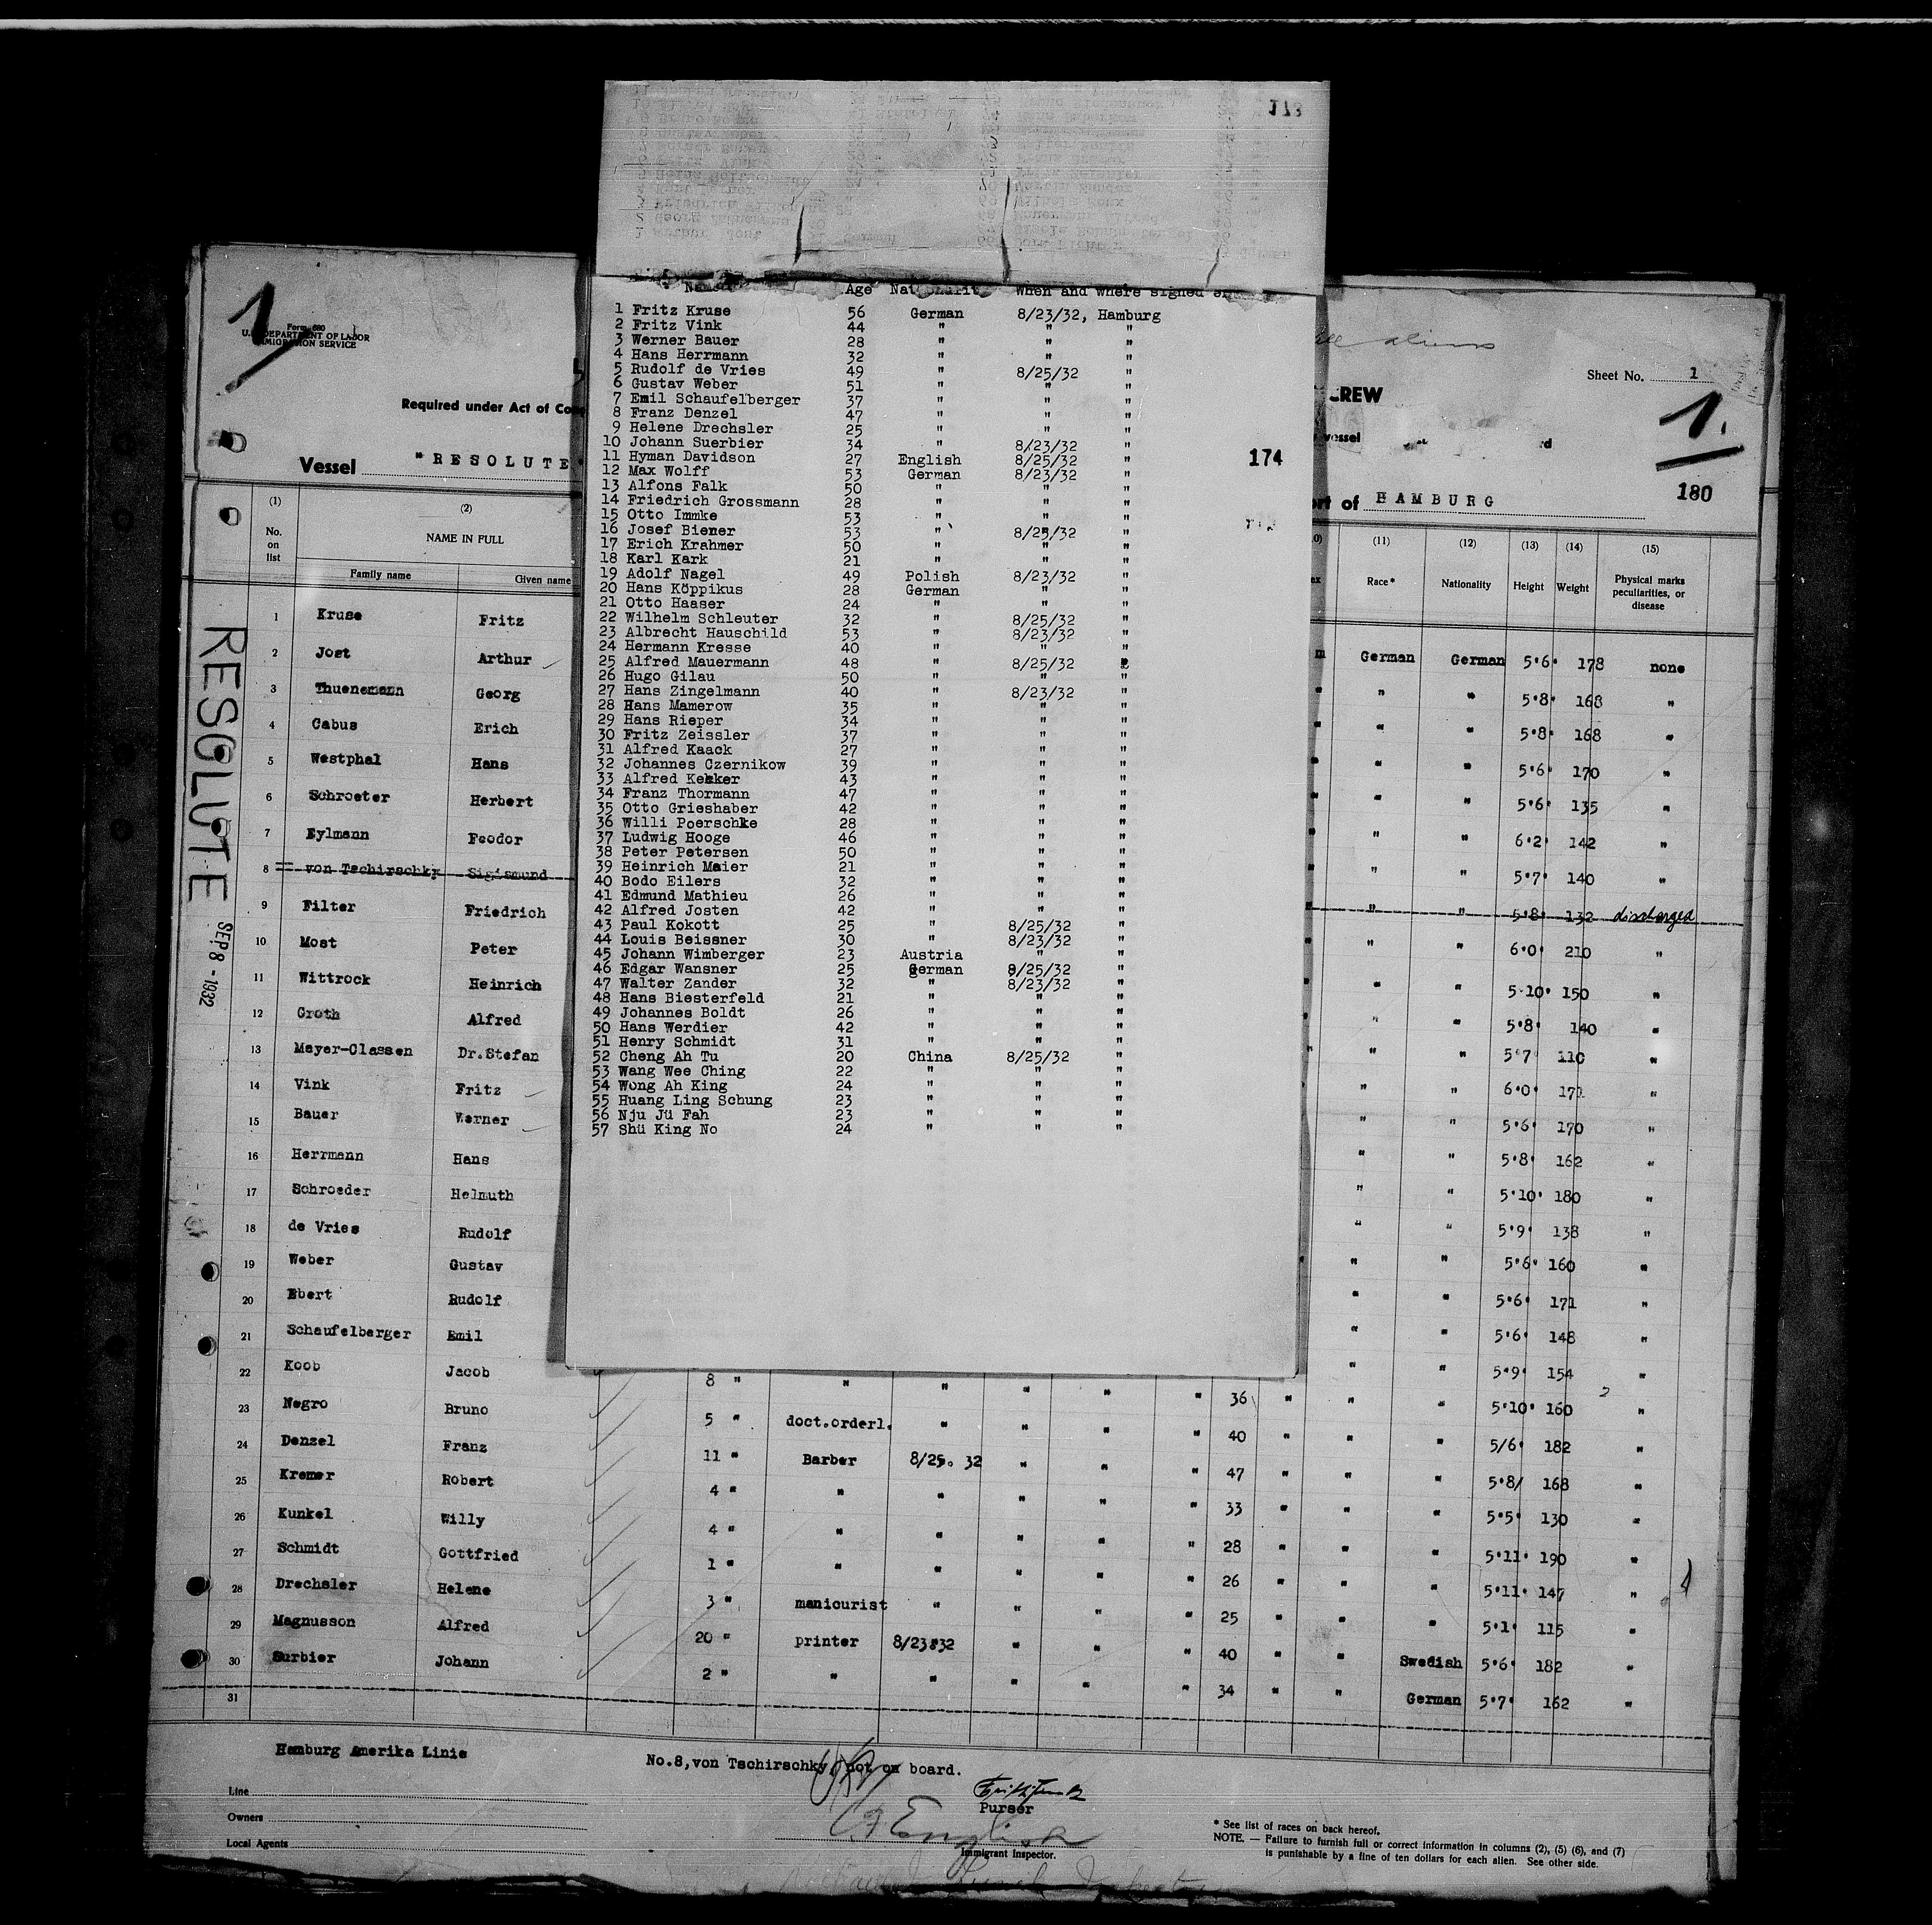 118
1
Form 680
U.S. DEPARTMENT OF LABOR
IMMIGRATION SERVICE
Required under Act of
Vessel "RESOLUTE"
(1) (2)
No. on list
NAME IN FULL
Family name Given name
1 Kruse Fritz
2 Jost Arthur
3 Thuenemann Georg
4 Cabus Erich
5 Westphal Hans
6 Schroeter Herbert
7 Eylmann Feodor
8 von Tschirschky Sigismund
9 Filter Friedrich
10 Most Peter
11 Wittrock Heinrich
12 Groth Alfred
13 Mayer-Classen Dr.Stefan
14 Vink Fritz
15 Bauer Werner
16 Herrmann Hans
17 Schroeder Helmuth
18 de Vries Rudolf
19 Weber Gustav
20 Ebert Rudolf
21 Schaufelberger Emil
22 Koob Jacob
23 Negro Bruno
24 Denzel Franz
25 Kremer Robert
26 Kunkel Willy
27 Schmidt Gottfried
28 Drechsler Helene
29 Magnusson Alfred
30 Surbier Johann
31
RESOLUTE
SEP 8 - 1932
Names Age Nationality When and where signed
1 Fritz Kruse 56 German 8/23/32, Hamburg
2 Fritz Vink 44 " " "
3 Werner Bauer 28 " " "
4 Hans Herrmann 32 " " "
5 Rudolf de Vries 49 " 8/25/32 "
6 Gustav Weber 51 " " "
7 Emil Schaufelberger 37 " " "
8 Franz Denzel 47 " " "
9 Helene Drechsler 25 " " "
10 Johann Suerbier 34 " 8/23/32 "
11 Hyman Davidson 27 English 8/25/32 "
12 Max Wolff 53 German 8/23/32 "
13 Alfons Falk 50 " " "
14 Friedrich Grossmann 28 " " "
15 Otto Immke 53 " " "
16 Josef Biener 53 " 8/25/32 "
17 Erich Krahmer 50 " " "
18 Karl Kark 21 " " "
19 Adolf Nagel 49 Polish 8/23/32 "
20 Hans Köppikus 28 German " "
21 Otto Haaser 24 " " "
22 Wilhelm Schleuter 32 " 8/25/32 "
23 Albrecht Hauschild 53 " 8/23/32 "
24 Hermann Kresse 40 " " "
25 Alfred Mauermann 48 " 8/25/32 "
26 Hugo Gilau 50 " " "
27 Hans Zingelmann 40 " 8/23/32 "
28 Hans Mamerow 35 " " "
29 Hans Rieper 34 " " "
30 Fritz Zeissler 37 " " "
31 Alfred Kaack 27 " " "
32 Johannes Czernikow 39 " " "
33 Alfred Kekker 43 " " "
34 Franz Thormann 47 " " "
35 Otto Grieshaber 42 " " "
36 Willi Poerschke 28 " " "
37 Ludwig Hooge 46 " " "
38 Peter Petersen 50 " " "
39 Heinrich Maier 21 " " "
40 Bodo Eilers 32 " " "
41 Edmund Mathieu 26 " " "
42 Alfred Josten 42 " " "
43 Paul Kokott 25 " 8/25/32 "
44 Louis Beissner 30 " 8/23/32 "
45 Johann Wimberger 23 Austria " "
46 Edgar Wansner 25 German 8/25/32 "
47 Walter Zander 32 " 8/23/32 "
48 Hans Biesterfeld 21 " " "
49 Johannes Boldt 26 " " "
50 Hans Werdier 42 " " "
51 Henry Schmidt 31 " " "
52 Cheng Ah Tu 20 China 8/25/32 "
53 Wang Wee Ching 22 " " "
54 Wong Ah King 24 " " "
55 Huang Ling Schung 23 " " "
56 Nju Jü Fah 23 " " "
57 Shü King No 24 " " "
174
aliens
Sheet No. 1
CREW
vessel
1.
180
port of HAMBURG
(11) (12) (13) (14) (15)
Race* Nationality Height Weight Physical marks peculiarities, or disease
m German German 5'6' 178 none
" " " 5'8' 168 "
" " " 5'8' 168 "
" " " 5'6' 170 "
" " " 5'6' 135 "
" " " 6'2' 142 "
" " " 5'7' 140 "
" " " 5'8' 132 discharged
" " 6'0' 210 "
" " " 5'10' 150 "
" " 5'8' 140 "
" " " 5'7' 110 "
" " 6'0' 171 "
" " 5'6' 170 "
" " 5'8' 162 "
" " 5'10' 180 "
" " 5'9' 138 "
" " 5'6' 160 "
" " 5'6' 171 "
" " 5'6' 148 "
8 " " " " " " 36 " " " 5'9' 154 "
5 " doct.orderl. " " " " 40 " " " 5'10' 160 "
11 " Barber 8/25. 32 " " " 47 " " " 5/6' 182 "
4 " " " " " " 33 " " " 5'8/ 168 "
4 " " " " " " 28 " " " 5'5' 130 "
1 " " " " " " 26 " " " 5'11' 190 "
3 " manicurist " " " " 25 " " " 5'11' 147 "
20 " printer 8/23832 " " " 40 " " Swedish 5'1' 115 "
2 " " " " " " 34 " " German 5'6' 182 "
5'7' 162 "
Hamburg Amerika Linie
Line
Owners
Local Agents
No.8,von Tschirschky, not on board.
Purser
English
Immigrant Inspector.
* See list of races on back hereof.
NOTE. — Failure to furnish full or correct information in columns (2), (5) (6), and (7)
is punishable by a fine of ten dollars for each alien. See other side.